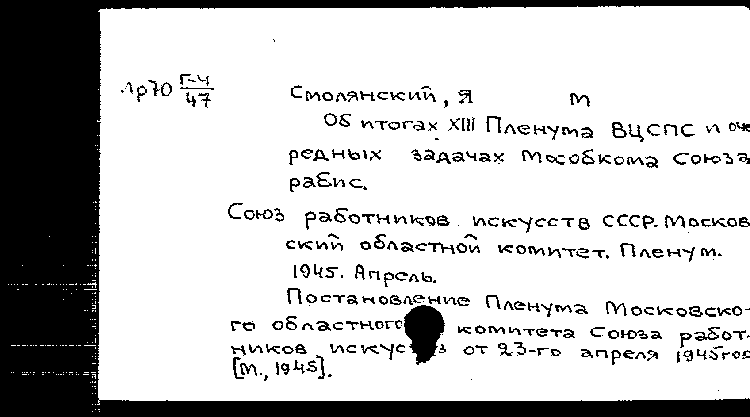 Лр70 Г-4/47
Смолянский, Я М
Об итогах XIII Пленума ВЦСПС и оче
редных задачах Мособкома Союза
рабис.
Союз работников искусств СССР. Москов
ский областной комитет. Пленум.
1945. Апрель.
Постановление Пленума Московско-
го областного комитета Союза работ-
ников искусств от 23-го апреля 1945 год
[М., 1945].